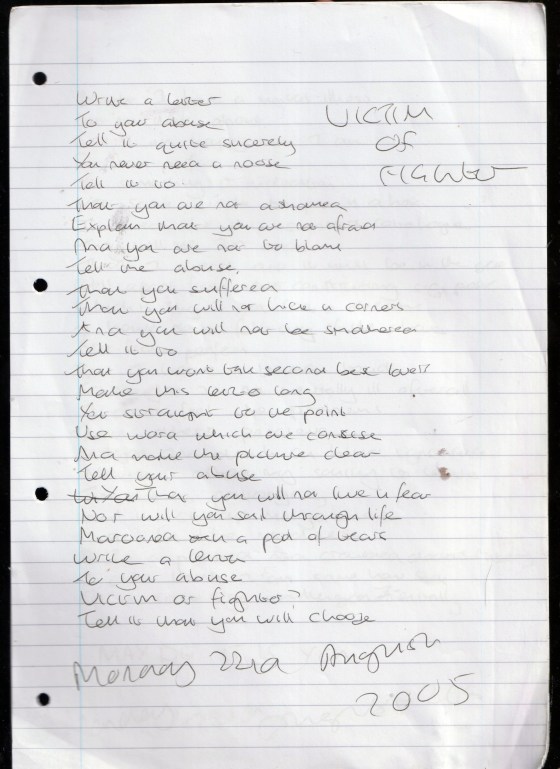 VICTIM
Of
FIGHTER
Write a letter
To your abuse
Tell it quite sincerely
You never need a noose
Tell it to
That you are not ashamed
Explain that you are not afraid
And you are not to blame
Tell the abuse.
That you suffered
That you will not hide in corners
And you will not be smothered
Tell it to
That you wont be second best
Make this letter long
Yet straight to the point
Use word which are consise
And make the picture clear
Tell your abuse
That you will not live in fear
Nor will you sail through life
Marooned on a pod of tears
Write a letter
To your abuse
Victim or fighter?
Tell it that you will choose
Monday 22nd August
2005